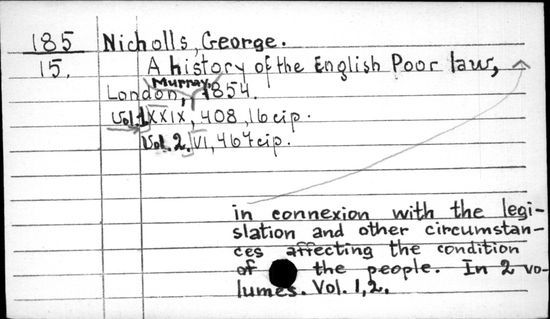 185 Nicholls, George.
15. A history of the English Poor law,
Murray,
London, 1854.
Vol.1 XXIX, 408, 16 cip.
Vol. 2. VI, 467 cip.
in connexion with the legi-
slation and other circumstan-
ces affecting the condition
of the people. In 2 vo-
lumes. Vol. 1,2.